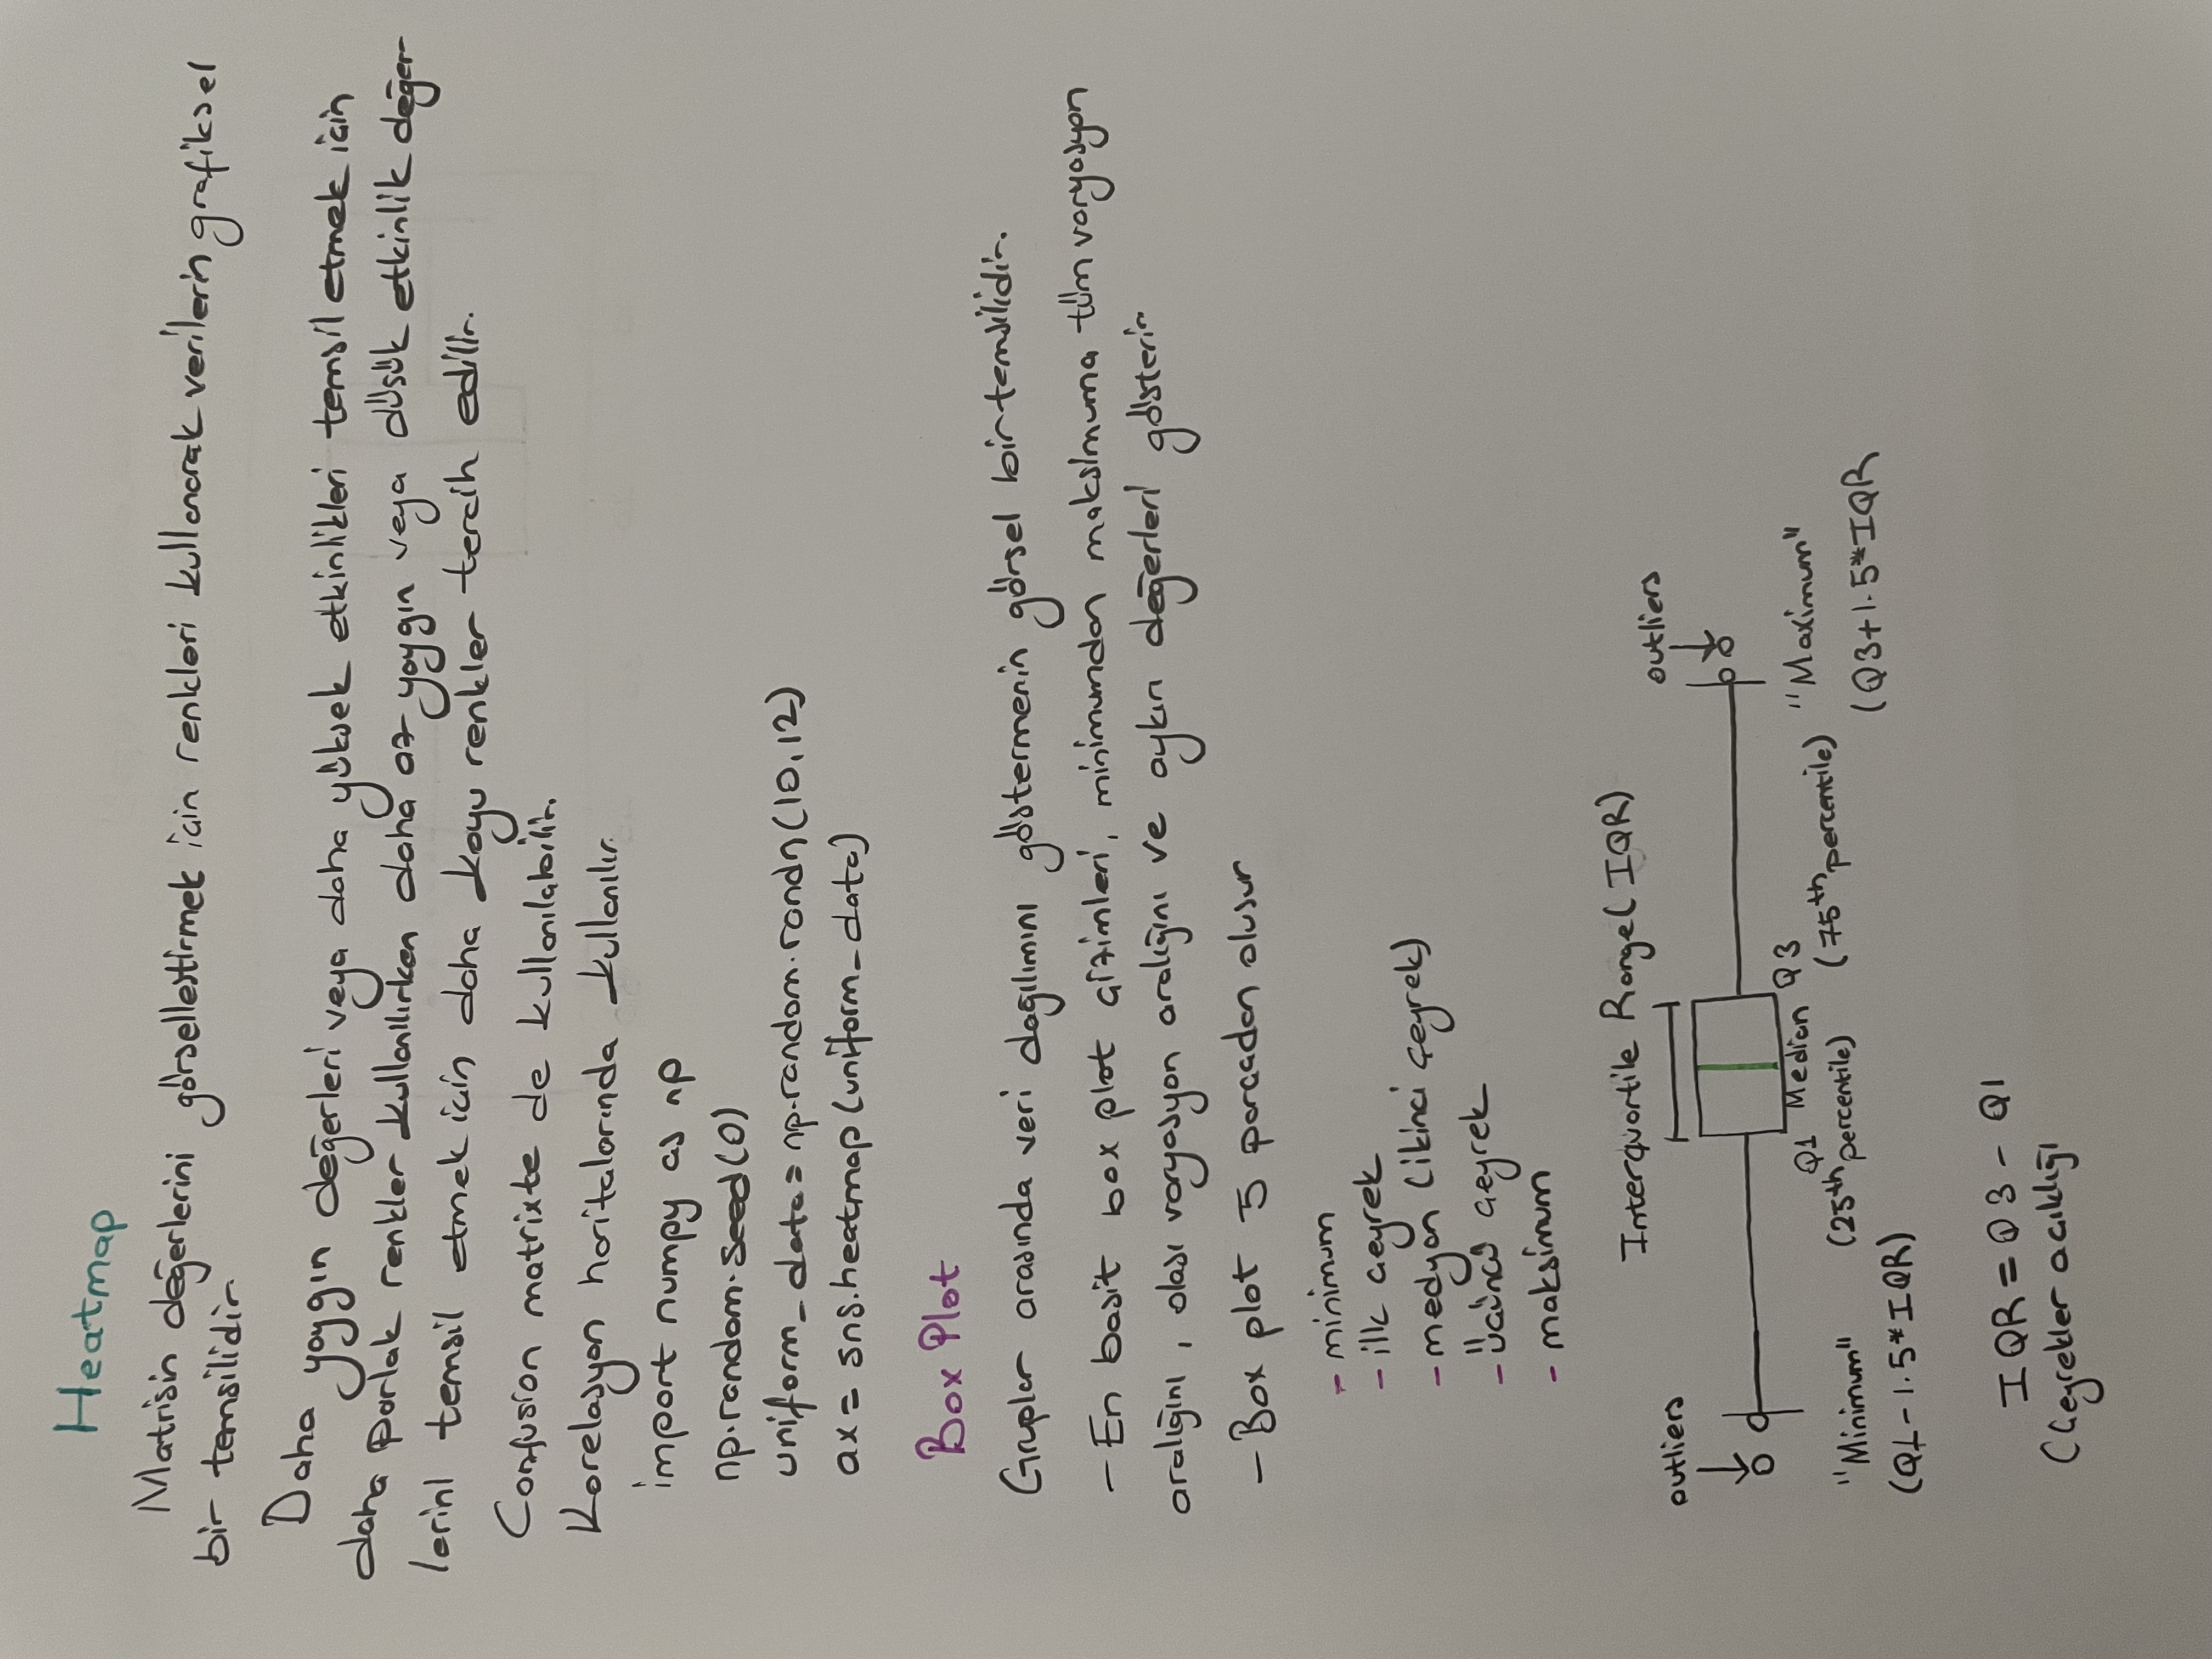 Heatmap
Matrisin değerlerini görselleştirmek için renkleri kullanarak verilerin grafiksel
bir temsilidir.
Daha yaygın değerleri veya daha yüksek etkinlikleri temsil etmek için
daha parlak renkler kullanılırken daha az yaygın veya düşük etkinlik değer-
lerini temsil etmek için daha koyu renkler tercih edilir.
Confusion matrixte de kullanılabilir.
Korelasyon haritalarında kullanılır.
import numpy as np
np.random.seed(0)
uniform_data = np.random.randn(10,12)
ax = sns.heatmap(uniform_data)
Box Plot
Gruplar arasında veri dağılımını göstermenin görsel bir temsilidir.
- En basit box plot çizimleri, minimumdan maksimuma tüm varyasyon
aralığını, olası varyasyon aralığını ve aykırı değerleri gösterir
- Box plot 5 parçadan oluşur
- minimum
- ilk çeyrek
- medyan (ikinci çeyrek)
- üçüncü çeyrek
- maksimum
Interquartile Range(IQR)
outliers
outliers
Q1 Median Q3
(25th percentile) (75th percentile)
"Minimum"
(Q1 - 1.5*IQR)
"Maximum"
(Q3+1.5*IQR
IQR = Q3 - Q1
(Çeyrekler açıklığı